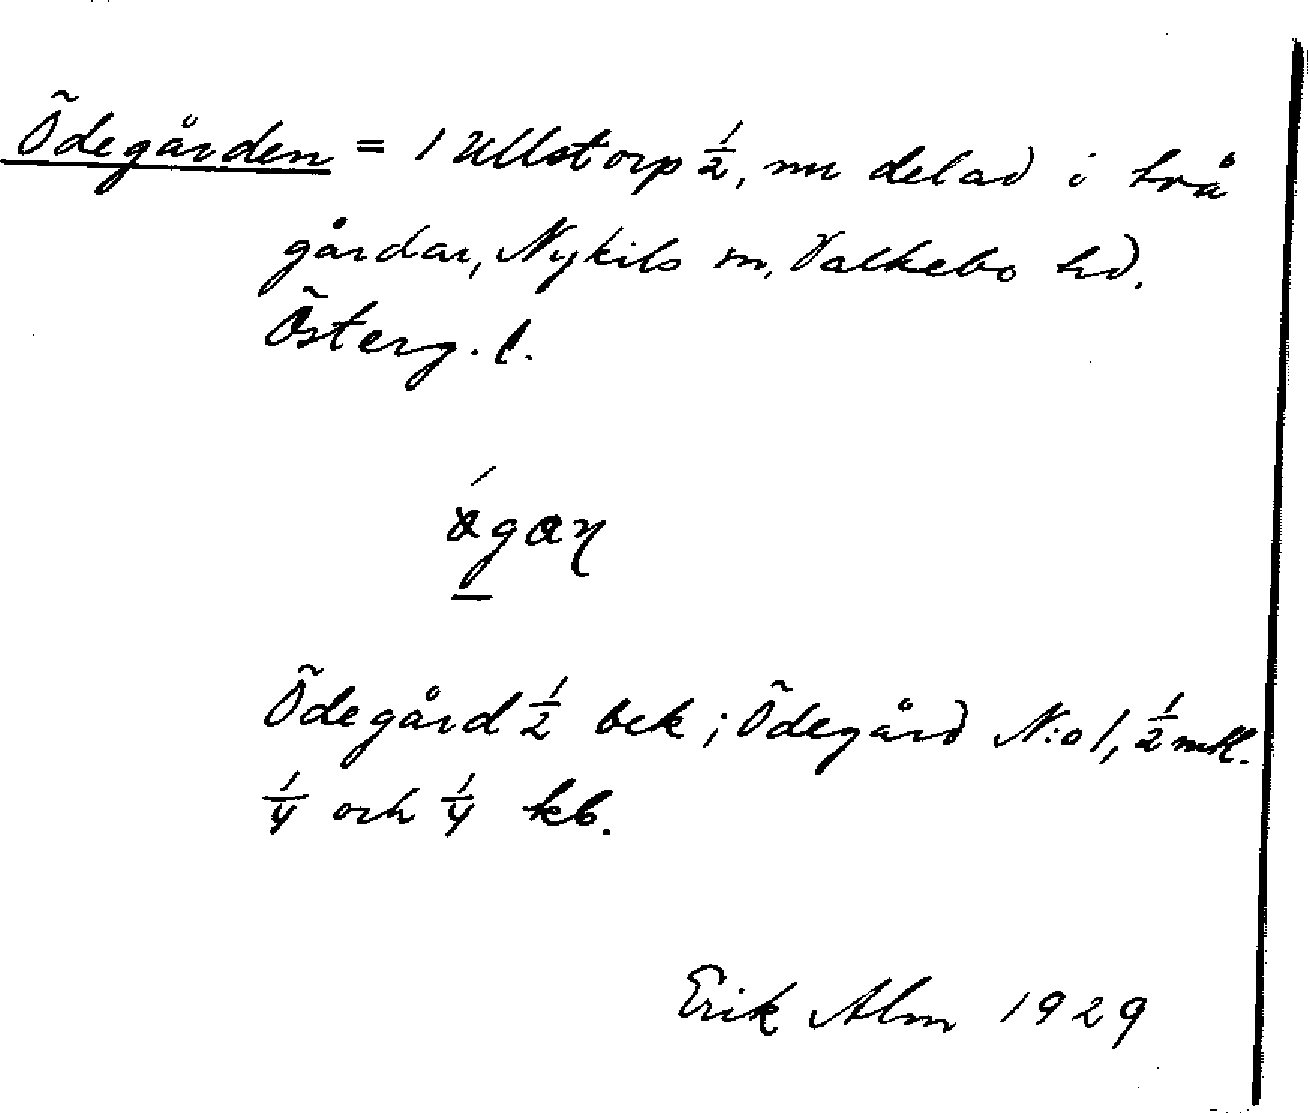 Ödegården = 1 Ullstorp ½, nu delad i två
gårdar, Nykils sn, Valkebo hd.
Österg. l.
Ödegård ½ bek; Ödegård N:o 1, ½ mtl.
¼ och ¼ kb.
Erik Alm 1929